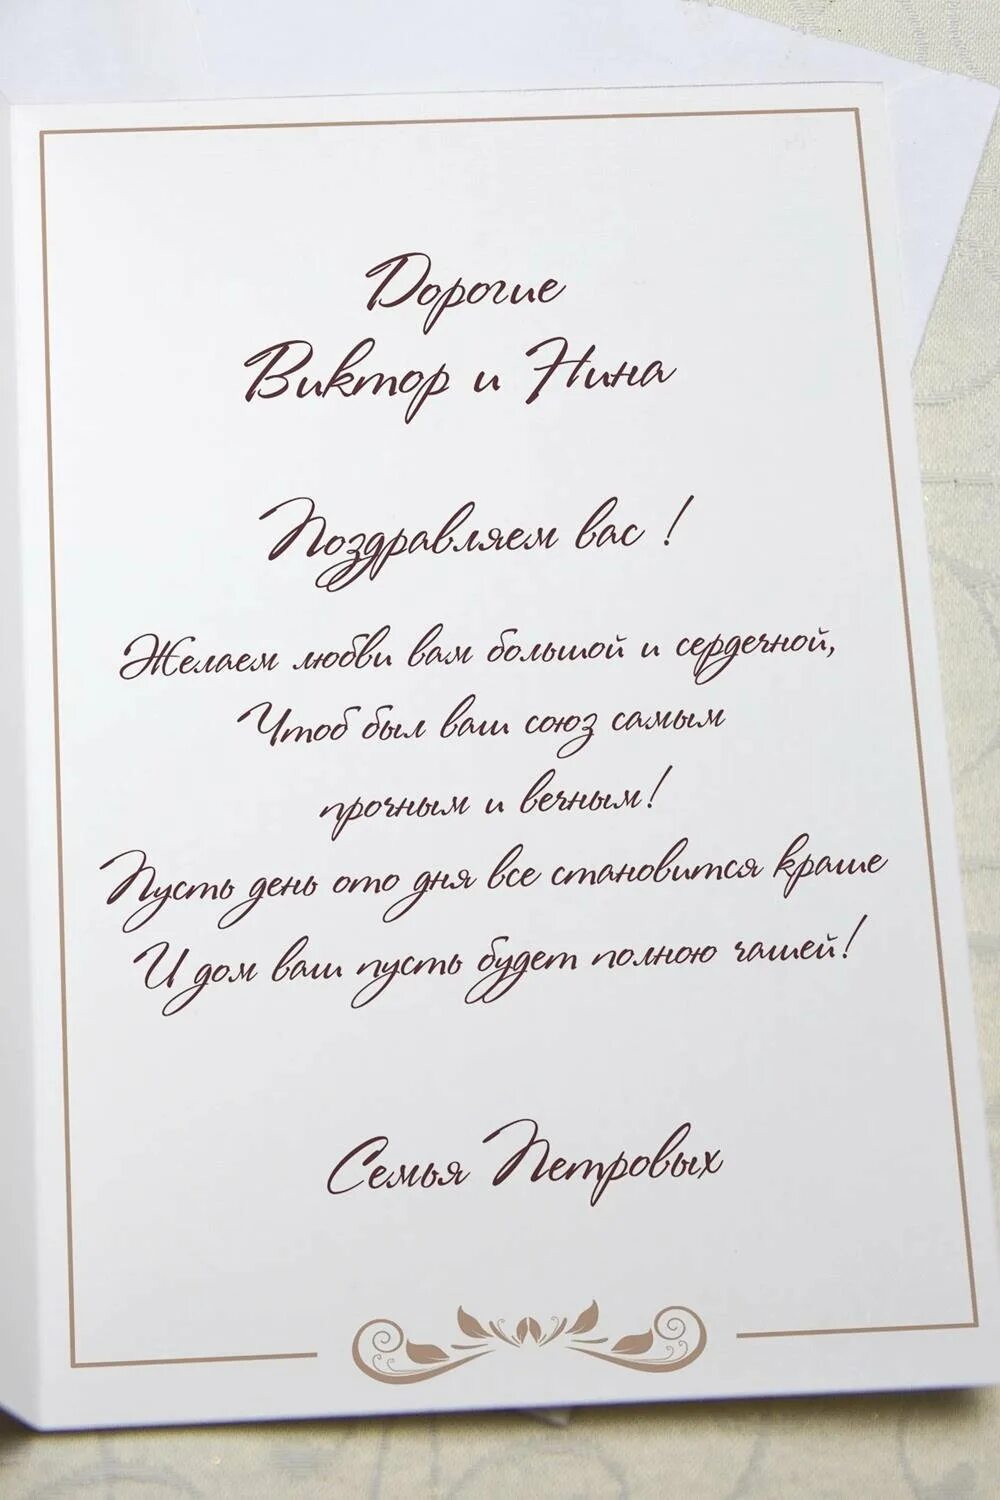 Дорогие
Виктор и Нина
Поздравляем вас !
Желаем любви вам большой и сердечной,
Чтоб был ваш союз самым
прочным и вечным!
Пусть день ото дня все становится краше
И дом ваш пусть будет полною чашей!
Семья Петровых